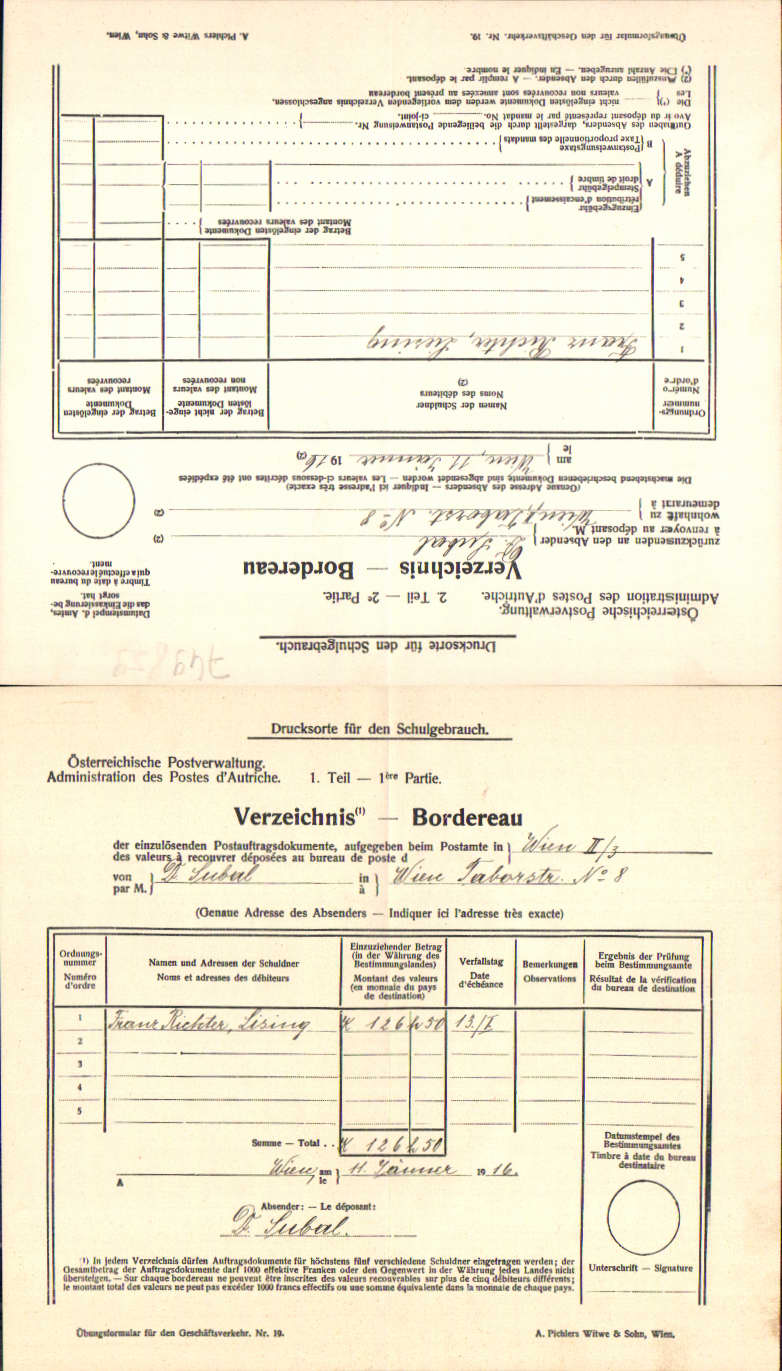 Drucksorte für den Schulgebrauch.
Österreichische Postverwaltung.
Administration des Postes d'Autriche. 2. Teil — 2e Partie.
Verzeichnis — Bordereau
Datumstempel d. Amtes,
das die Einkassierung be-
sorgt hat.
Timbre à date du bureau
qui a effectué le recouvre-
ment.
zurückzusenden an den Absender
à renvoyer au déposant M.
D. Subal (2)
wohnhaft zu
demeurant à
Wien, Taborstr. No 8 (2)
(Genaue Adresse des Absenders — Indiquer ici l'adresse très exacte)
Die nachstehend beschriebenen Dokumente sind abgesendet worden — Les valeurs ci-dessous décrites ont été expédiées
am
le
Wien, 11. Jänner 1916 (2)
Ordnungs-
nummer
Numéro
d'ordre
Namen der Schuldner
Noms des débiteurs
(2)
Betrag der nicht einge-
lösten Dokumente
Montant des valeurs
non recouvrées
Betrag der eingelösten
Dokumente
Montant des valeurs
recouvrées
1 Franz Richter, Lising
2
3
4
5
Betrag der eingelösten Dokumente
Montant des valeurs recouvrées
Abzuziehen
A déduire
A
Einzugsgebühr
rétribution d'encaissement
Stempelgebühr
droit de timbre
B
Postanweisungstaxe
Taxe proportionelle des mandats
Guthaben des Absenders, dargestellt durch die beiliegende Postanweisung Nr.
Avoir du déposant représenté par le mandat No. ci-joint.
Die (1) nicht eingelösten Dokumente werden dem vorliegenden Verzeichnis angeschlossen.
Les valeurs non recouvrées sont annexées au présent bordereau
(2) Auszufüllen durch den Absender. — A remplir par le déposant.
(1) Die Anzahl anzugeben. — En indiquer le nombre.
Übungsformular für den Geschäftsverkehr. Nr. 19. A. Pichlers Witwe & Sohn, Wien.
Drucksorte für den Schulgebrauch.
Österreichische Postverwaltung.
Administration des Postes d'Autriche. 1. Teil — 1ère Partie.
Verzeichnis(1) — Bordereau
der einzulösenden Postauftragsdokumente, aufgegeben beim Postamte in
des valeurs à recouvrer déposées au bureau de poste d
Wien II/3
von
par M.
D. Subal
in
à
Wien Taborstr. No 8
(Genaue Adresse des Absenders — Indiquer ici l'adresse très exacte)
Ordnungs-
nummer
Numéro
d'ordre
Namen und Adressen der Schuldner
Noms et adresses des débiteurs
Einzuziehender Betrag
(in der Währung des
Bestimmungslandes)
Montant des valeurs
(en monnaie du pays
de destination)
Verfallstag
Date
d'échéance
Bemerkungen
Observations
Ergebnis der Prüfung
beim Bestimmungsamte
Résultat de la vérification
du bureau de destination
1 Franz Richter, Lising K 126 h 50 13./I
2
3
4
5
Summe — Total . . K 126 h 50
Datumstempel des
Bestimmungsamtes
Timbre à date du bureau
destinataire
A Wien, am
le
11. Jänner 1916.
Absender: — Le déposant:
D. Subal.
(1) In jedem Verzeichnis dürfen Auftragsdokumente für höchstens fünf verschiedene Schuldner eingetragen werden; der
Gesamtbetrag der Auftragsdokumente darf 1000 effektive Franken oder den Gegenwert in der Währung jedes Landes nicht
übersteigen. — Sur chaque bordereau ne peuvent être inscrites des valeurs recouvrables sur plus de cinq débiteurs différents;
le montant total des valeurs ne peut pas excéder 1000 francs effectifs ou une somme équivalente dans la monnaie de chaque pays.
Unterschrift — Signature
Übungsformular für den Geschäftsverkehr. Nr. 19. A. Pichlers Witwe & Sohn, Wien.